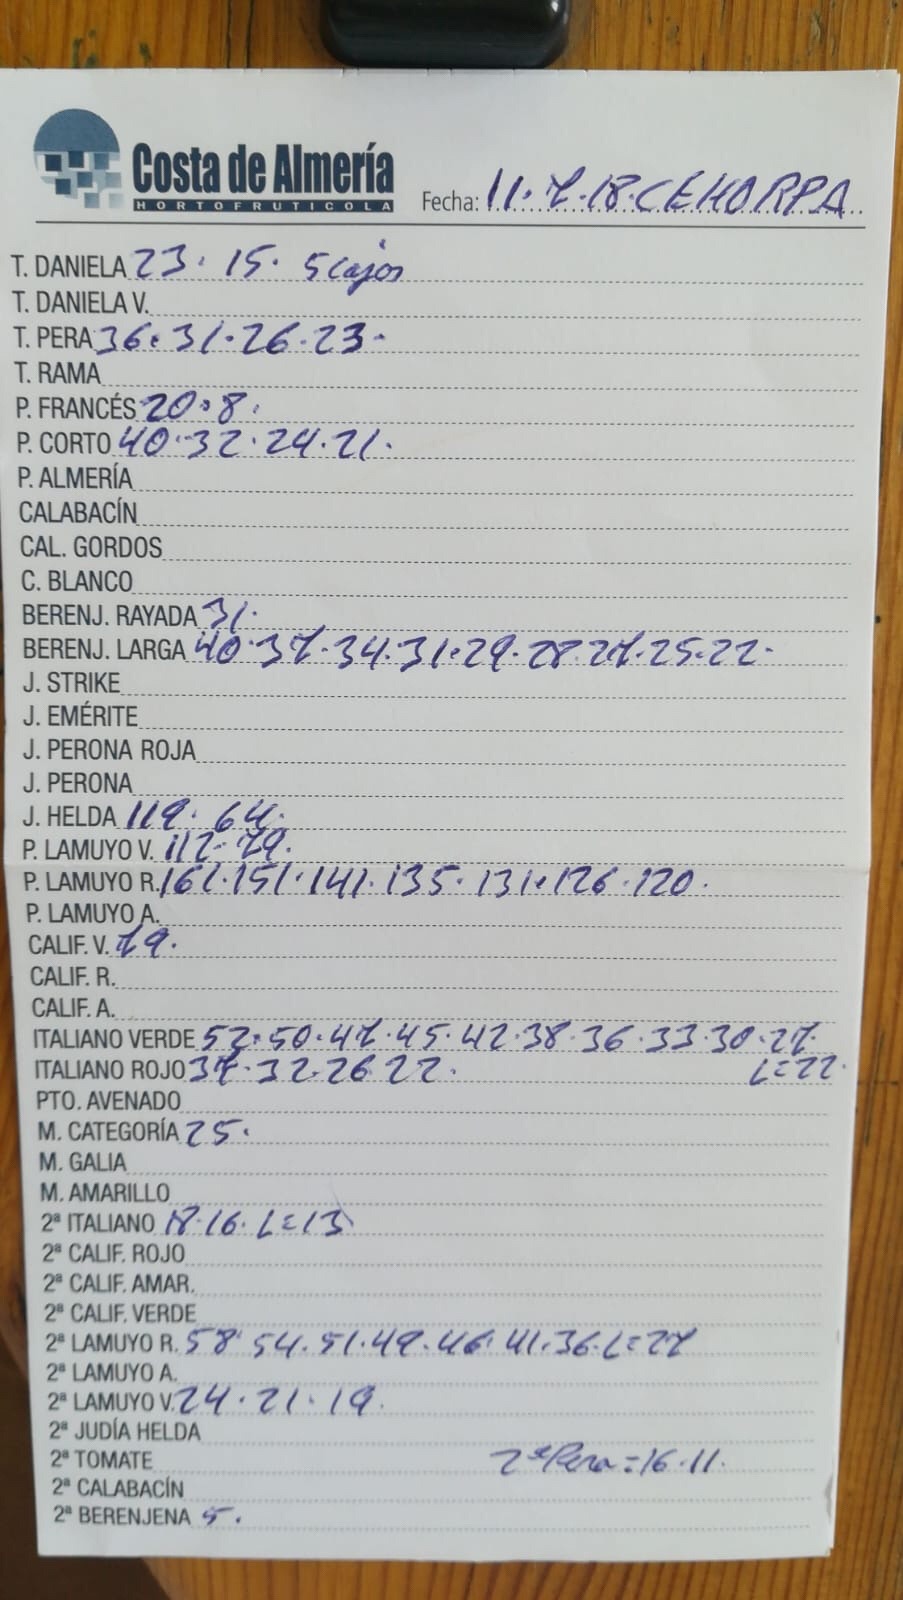 Costa de Almería
HORTOFRUTICOLA
Fecha: 11·7·18·CEHORPA
T. DANIELA 23· 15· 5 cajos
T. DANIELA V.
T. PERA 36·31·26·23·
T. RAMA
P. FRANCÉS 20·8·
P. CORTO 40·32·24·21·
P. ALMERÍA
CALABACÍN
CAL. GORDOS
C. BLANCO
BERENJ. RAYADA 31·
BERENJ. LARGA 40·37·34·31·29·28·27·25·22·
J. STRIKE
J. EMÉRITE
J. PERONA ROJA
J. PERONA
J. HELDA 119· 64·
P. LAMUYO V. 112· 79·
P. LAMUYO R. 161·151·141·135·131·126·120·
P. LAMUYO A.
CALIF. V. 79·
CALIF. R.
CALIF. A.
ITALIANO VERDE 52·50·47·45·42·38·36·33·30·27·
ITALIANO ROJO 37·32·26·22· L=22·
PTO. AVENADO
M. CATEGORÍA 25·
M. GALIA
M. AMARILLO
2ª ITALIANO 18·16· L=13
2ª CALIF. ROJO
2ª CALIF. AMAR.
2ª CALIF. VERDE
2ª LAMUYO R. 58·54·51·49·46·41·36·L=27
2ª LAMUYO A.
2ª LAMUYO V. 24·21·19·
2ª JUDÍA HELDA
2ª TOMATE 2ª Pera=16·11·
2ª CALABACÍN
2ª BERENJENA 5·